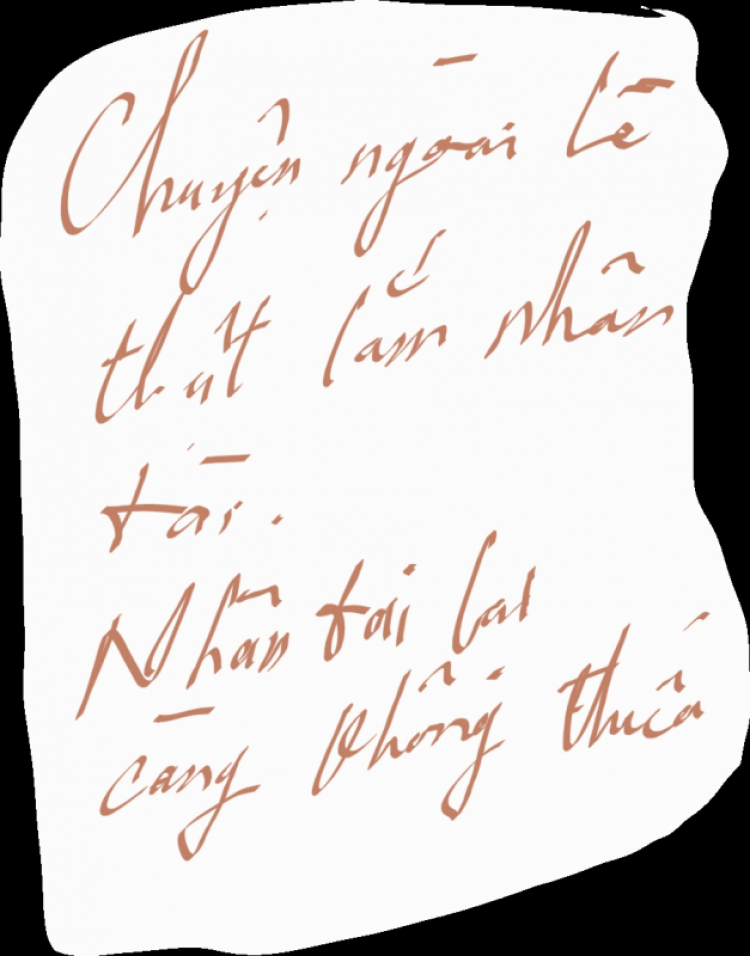 Chuyện ngoài lề
thứ lắm nhân
tài.
Nhân tài lại
càng không thiếu